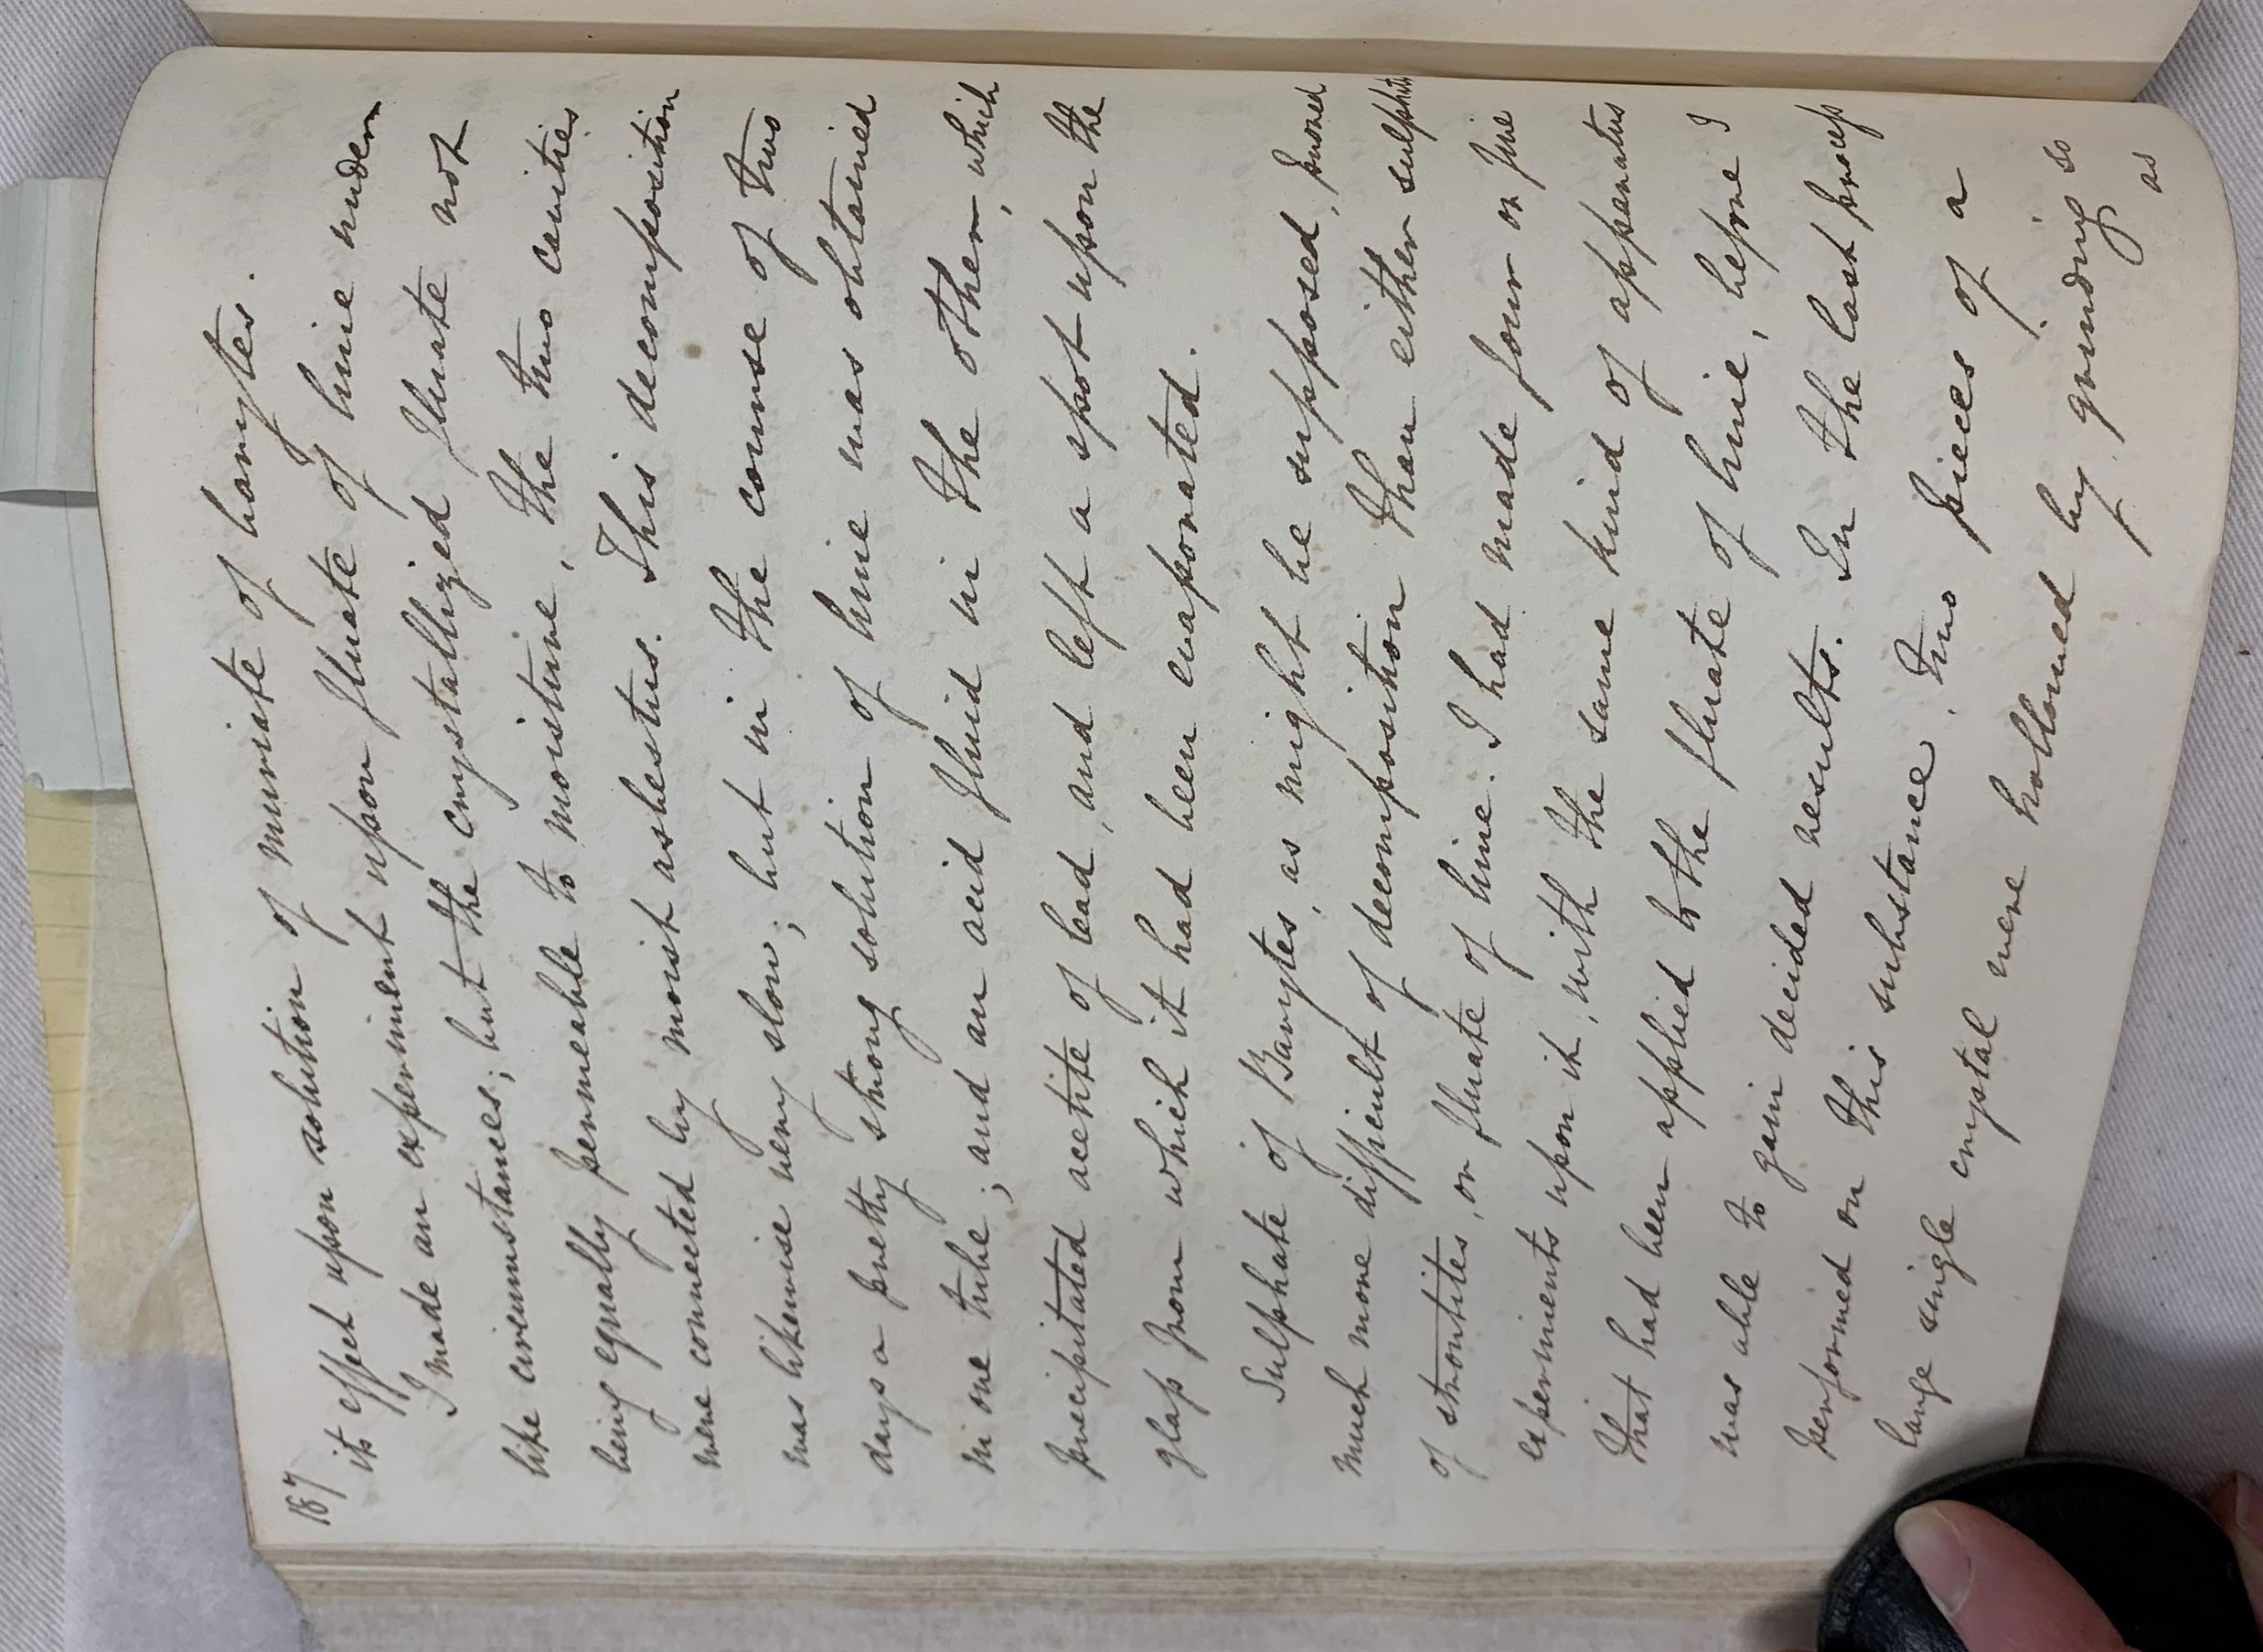 187
its effect upon solution of muriate of barytes.
I made an experiment upon fluate of lime under
like circumstances; but the crystallized fluate not
being equally permeable to moisture, the two cavities
were connected by moist asbestus. This decomposition
was likewise very slow; but in the course of two
days a pretty strong solution of lime was obtained
in one tube; and an acid fluid in the other, which
precipitated acetite of lead, and left a spot upon the
glass from which it had been evaporated.
Sulphate of Barytes, as might be supposed, proved
much more difficult of decomposition than either sulphate
of strontites, or fluate of lime. I had made four or five
experiments upon it, with the same kind of apparatus
that had been applied to the fluate of lime, before I
was able to gain decided results. In the last process
performed on this substance, two pieces of a
large single crystal were hollowed by grinding so
as